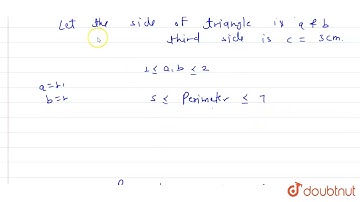 Let the side of triangle is a & b
third side is c = 3cm.
1 ≤ a, b ≤ 2
a=1,
b=2
5 ≤ Perimeter ≤ 7
doubtnut